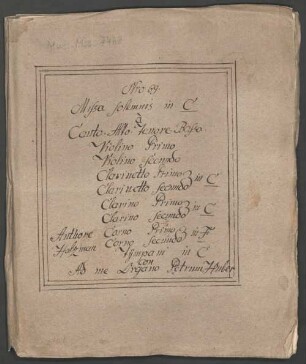 Mus. Ms.
Nro 69.
Missa Solemnis in C
à
Canto Alto Tenore Basso
Violino Primo
Violino Secundo
Clarinetto Primo
Clarinetto Secundo in C
Clarino Primo
Clarino Secundo in C
Authore Corno Primo
Corno Secundo in F
Tympani in C
con
Organo
Ad me Petrum Huber